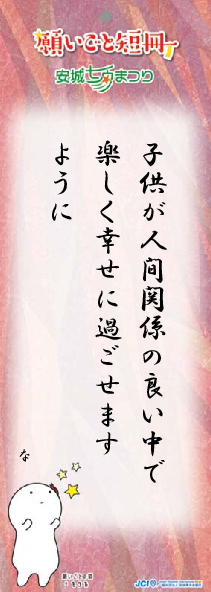 願いごと短冊
安城七夕まつり
子供が人間関係の良い中で
楽しく幸せに過ごせます
ように
な
JCI